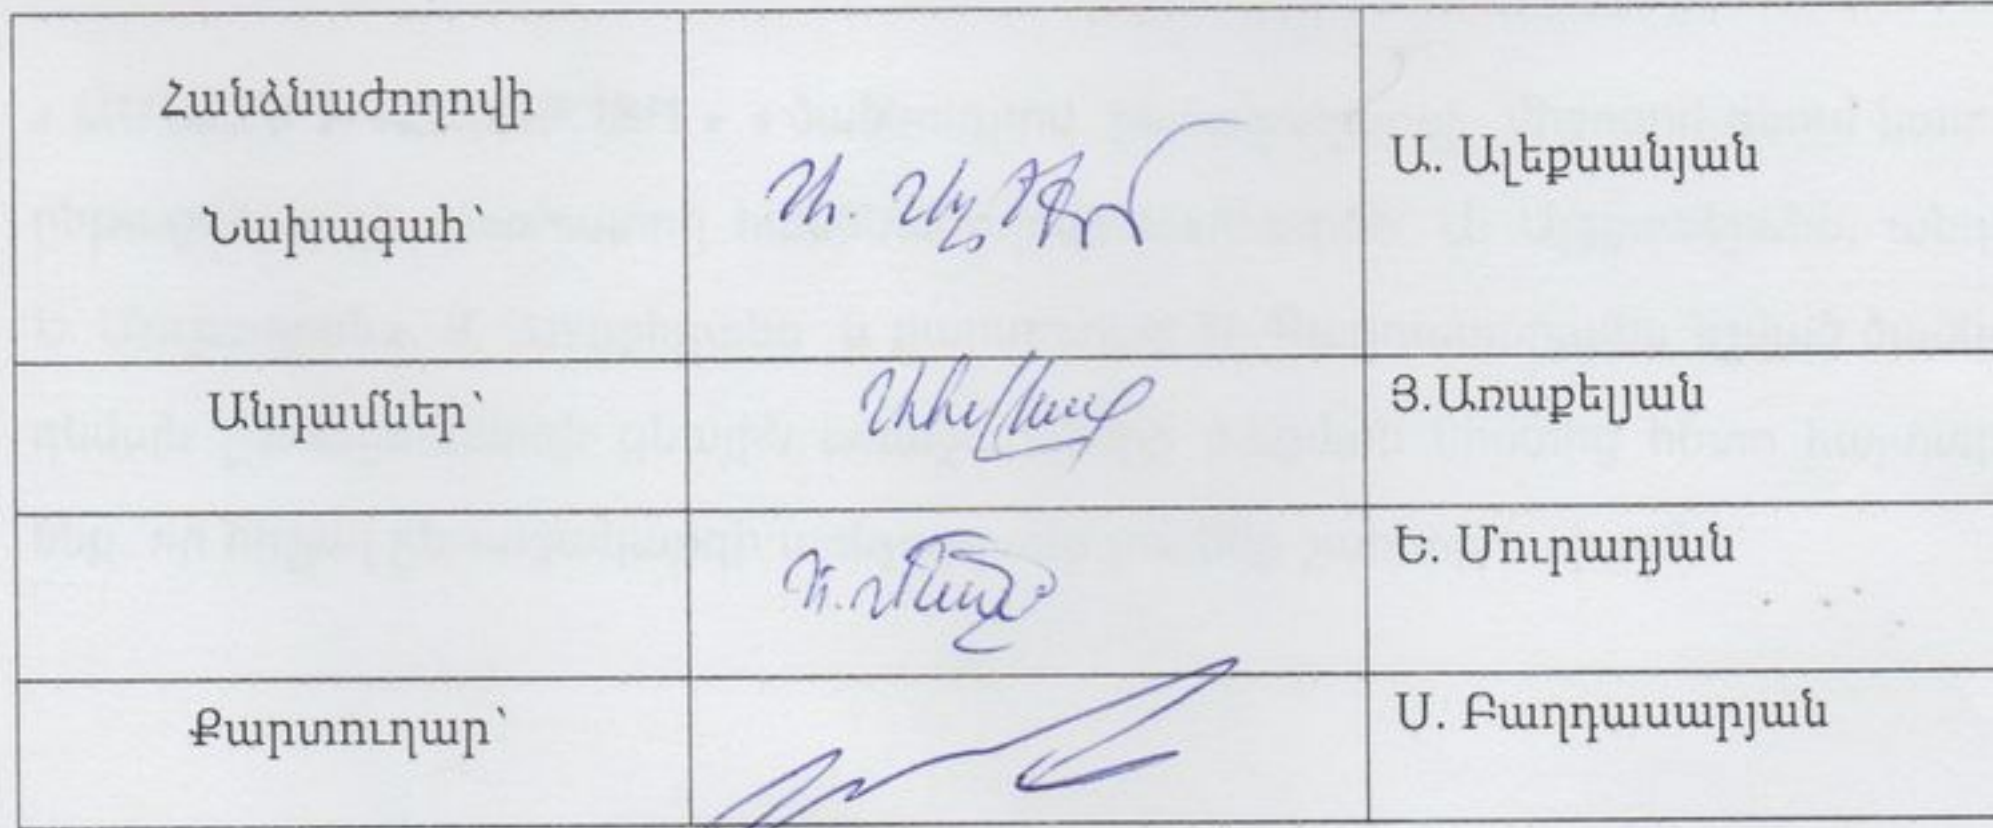 Հանձնաժողովի
Նախագահ՝
Ա. Ալեքսանյան
Անդամներ՝
Յ.Առաքելյան
Ե. Մուրադյան
Քարտուղար՝
Ս. Բաղդասարյան